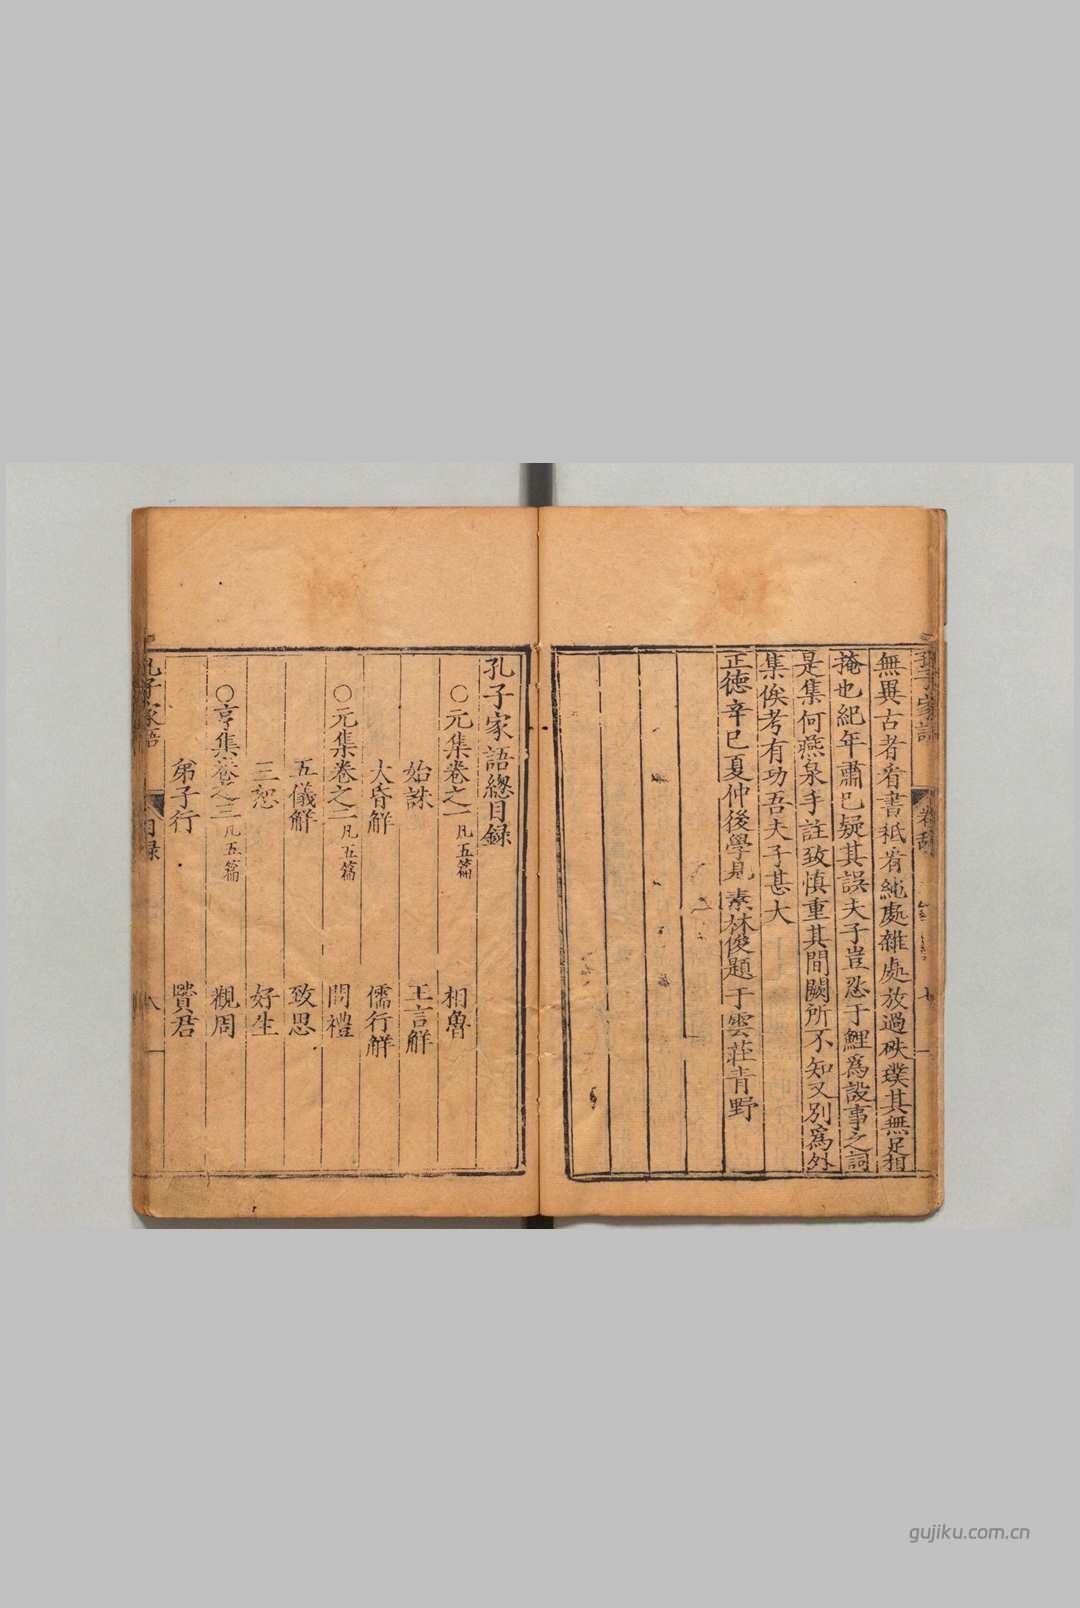 無異古者看書祗看純處雜處放過砆璞其無足相
掩也紀年肅已疑其誤夫子豈忍于鯉爲設事之詞
是集何燕泉手註致慎重其間闕所不知又別爲外
集俟考有功吾夫子甚大
正德辛巳夏仲後學見素林俊題于雲莊青野
孔子家語總目録
○元集卷之一凡五篇
相魯
始誅
王言解
大昏解
儒行解
○元集卷之二凡五篇
問禮
五儀解
致思
三恕
好生
○亨集卷之三凡五篇
觀周
弟子行
賢君
孔子家語
目録
八
gujiku.com.cn